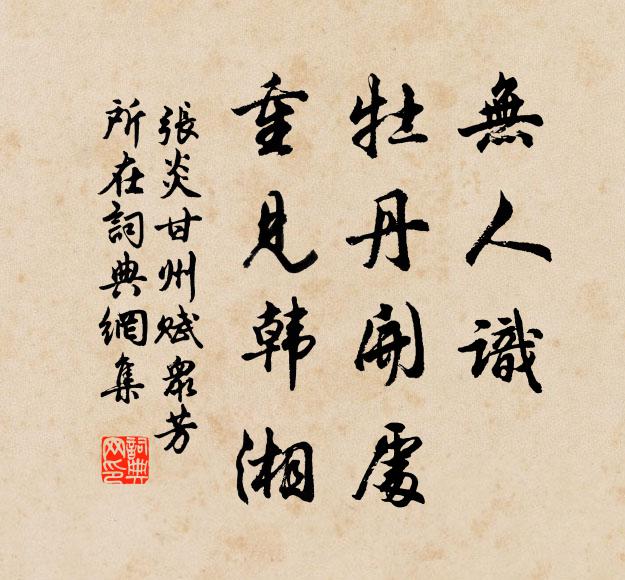 無人識
牡丹開處
重見韓湘
張炎甘州賦眾芳
所在詞典網集
詞典
网印